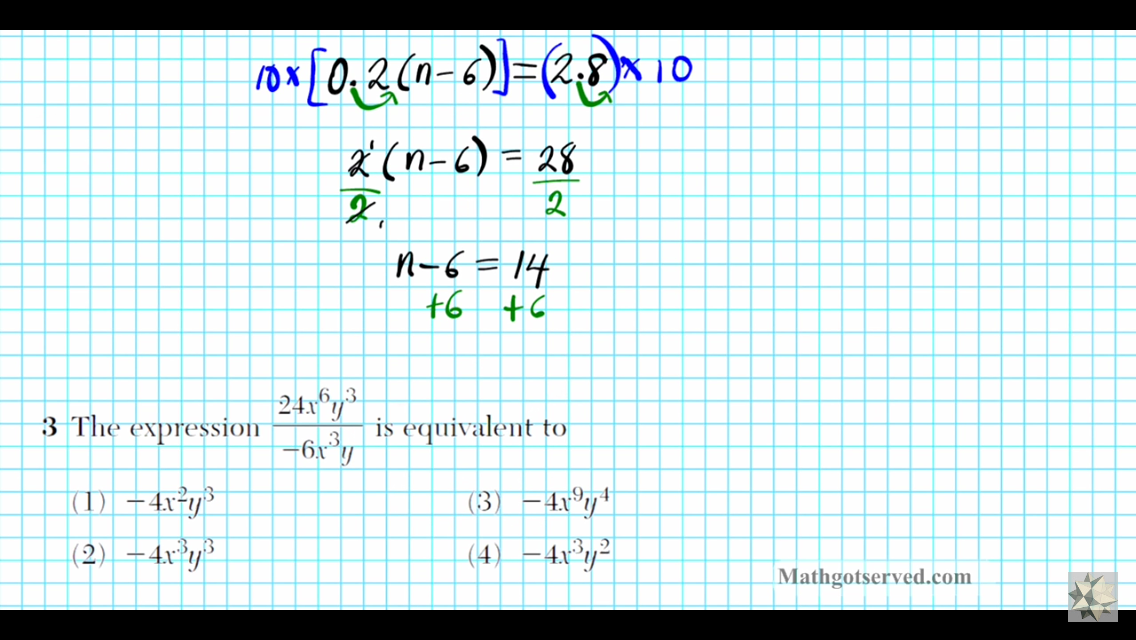 10×[0.2(n-6)]=(2.8)×10
2¹(n-6) = 28
2₁ 2
n-6 = 14
+6 +6
3 The expression 24x⁶y³ / -6x³y is equivalent to
(1) -4x²y³ (3) -4x⁹y⁴
(2) -4x³y³ (4) -4x³y²
Mathgotserved.com